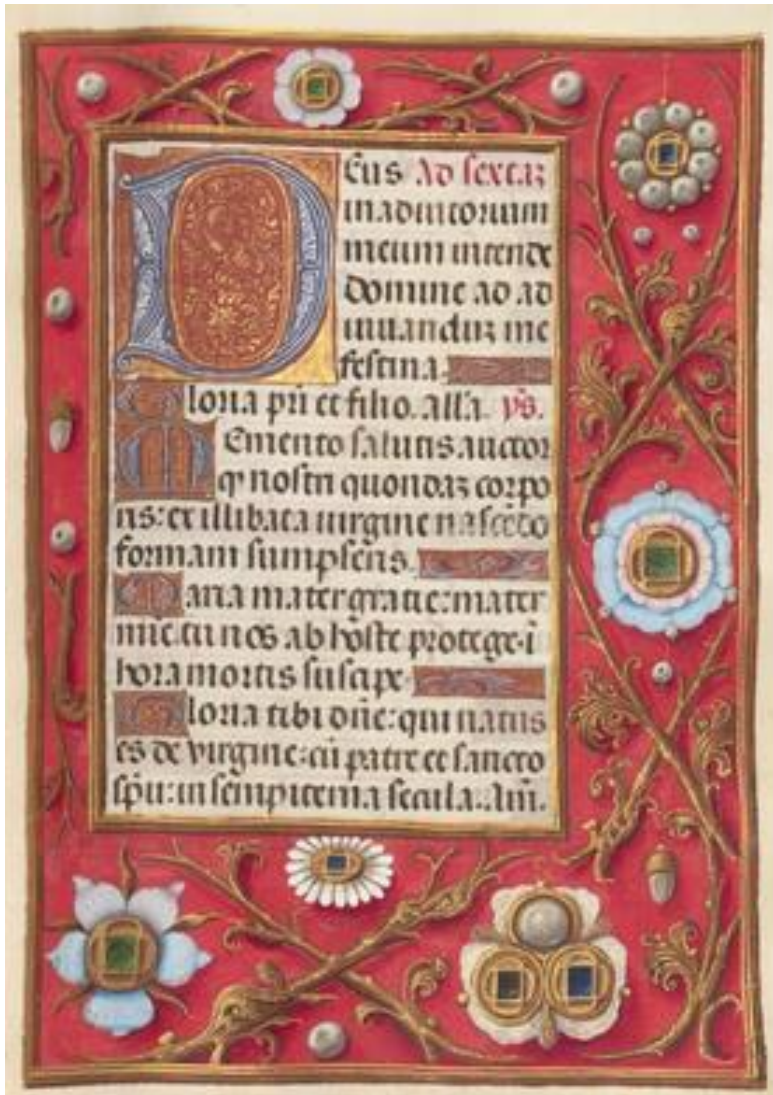 Deus Ad sextaz
in adiutorium
meum intende
domine ad ad
iuuanduz me
festina
Gloria pri et filio. alla. ps.
Memento salutis auctor
q nostri quondaz corpo
ris: ex illibata uirgine nascedo
formam sumpseris
Maria mater gratie: mater
mie. tu nos ab hoste protege. i
hora mortis suscipe
Gloria tibi dne: qui natus
es de virgine: cu patre et sancto
spu: in sempiterna secula. Am.